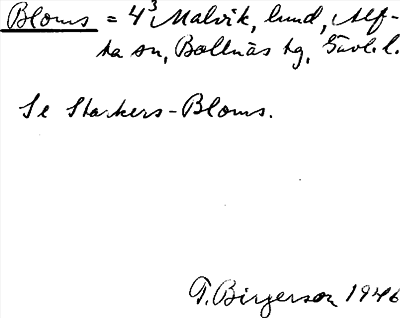 Bloms = 4³ Malvik, lund, Alf-
ta sn, Bollnäs tg, Gävl.l.
Se Starkers-Bloms.
T. Birgerson 1946